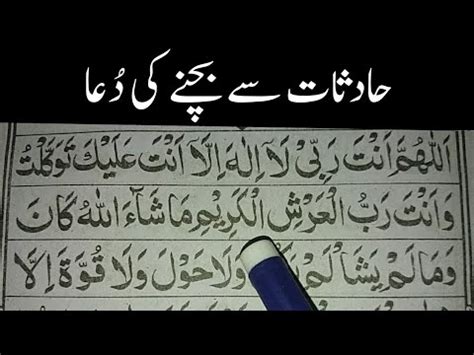 حادثات سے بچنے کی دُعا
اَللّٰهُمَّ اَنْتَ رَبِّیْ لَاۤ اِلٰهَ اِلَّاۤ اَنْتَ عَلَیْكَ تَوَكَّلْتُ
وَاَنْتَ رَبُّ الْعَرْشِ الْكَرِیْمِ مَا شَآءَ اللّٰهُ كَانَ
وَمَا لَمْ یَشَاْ لَمْ وَلَا حَوْلَ وَلَا قُوَّةَ اِلَّا